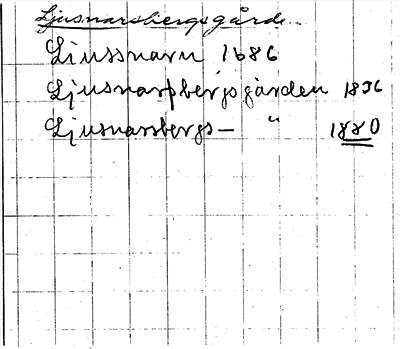 Ljusnarsbergsgård..
Ljussnarn 1686
Ljusnarsbergsgården 1836
Ljusnarsbergs— " 1880